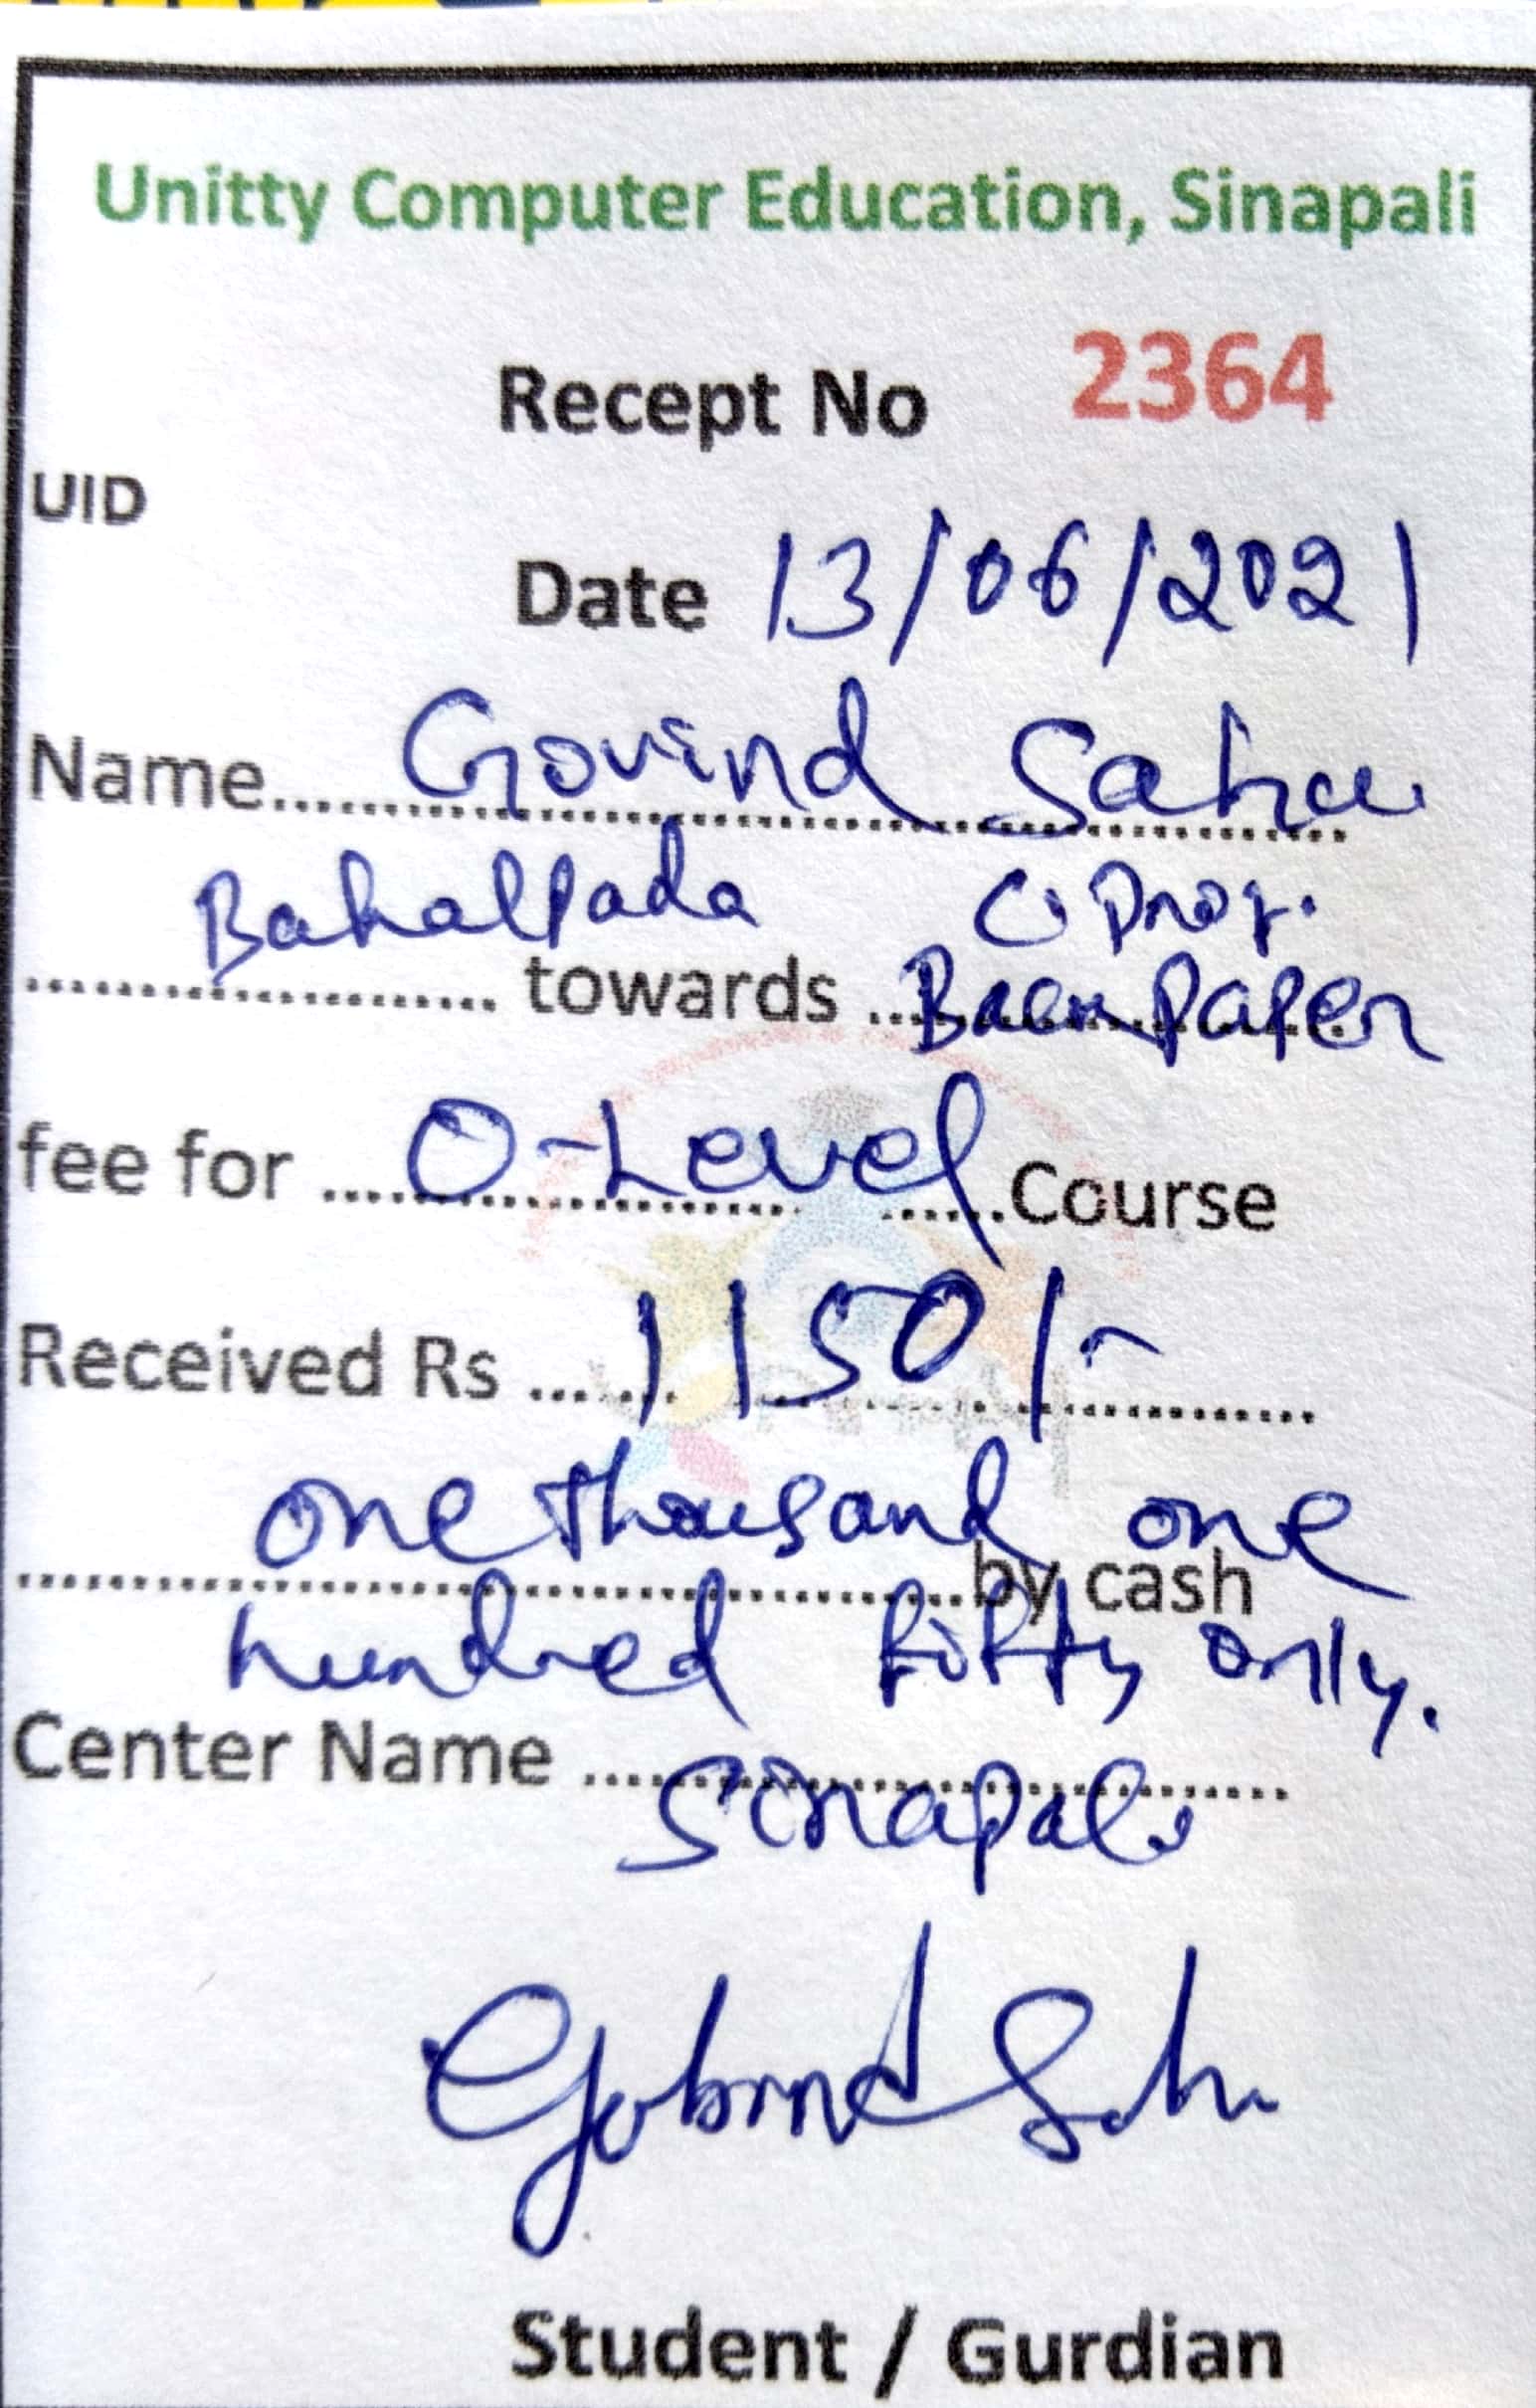 Unitty Computer Education, Sinapali
Recept No 2364
UID
Date 13/06/2021
Name Govind Sahu
Bahalpada C Prog.
towards Back Paper
fee for O-Level Course
Received Rs 1150/-
one thousand one
by cash
hundred fifty only.
Center Name
Sinapali
Gobind Sahu
Student / Gurdian